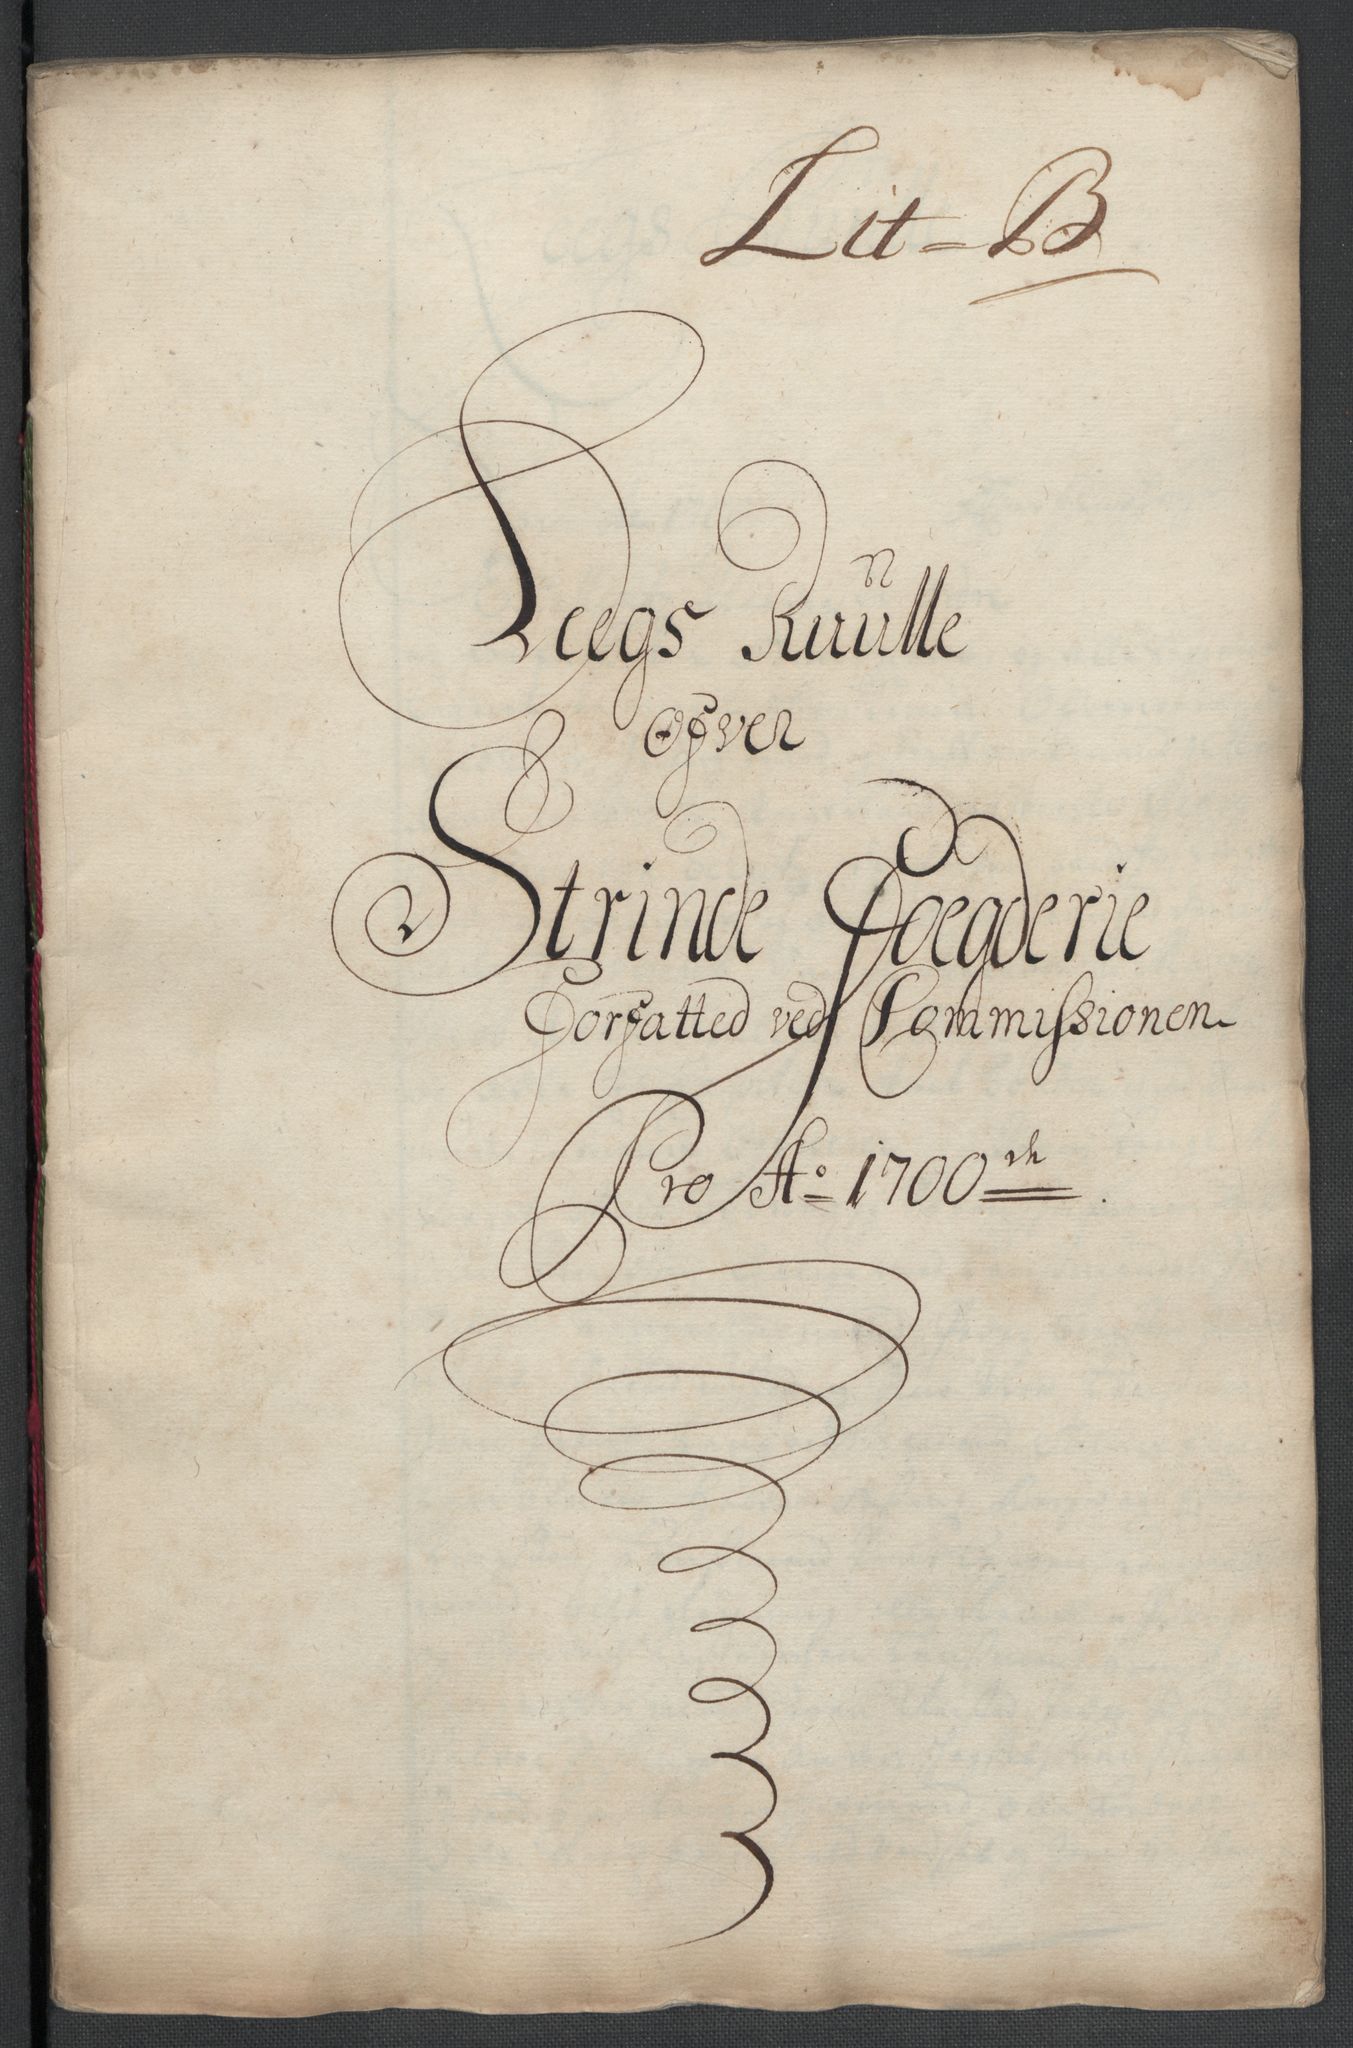 Lit = B
Leegs Ruulle
ofver
Strinde Foegderie
Forfatted ved Commissionen
Pro Ao 1700